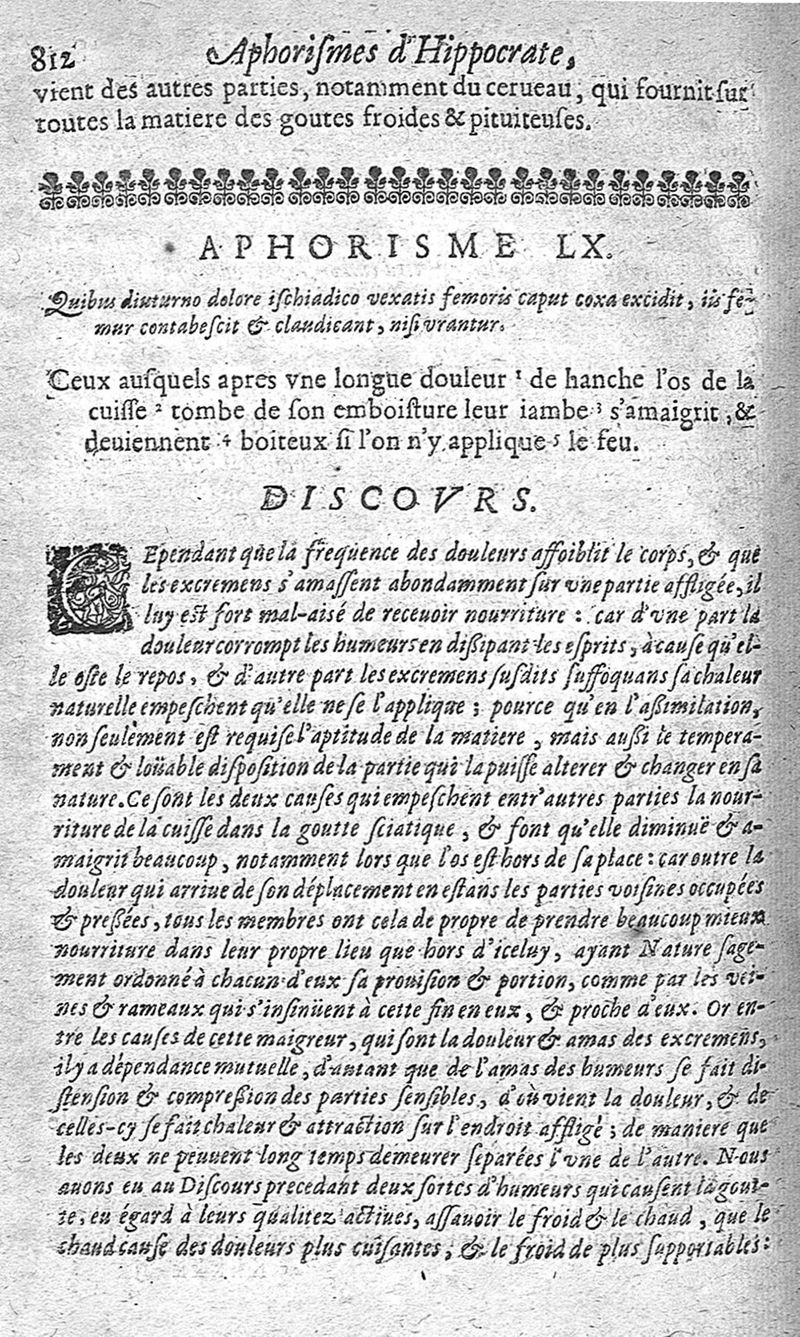 812 Aphoriſmes d'Hippocrate,
vient des autres parties, notamment du cerueau, qui fournit ſur
toutes la matiere des goutes froides & pituiteuſes.
APHORISME LX.
Quibus diuturno dolore iſchiadico vexatis femoris caput coxa excidit, iis fe-
mur contabeſcit & claudicant, niſi vrantur.
Ceux auſquels apres vne longue douleur 1 de hanche l'os de la
cuiſſe 2 tombe de ſon emboiſture leur iambe 3 s'amaigrit, &
deuiennent 4 boiteux ſi l'on n'y applique 5 le feu.
DISCOVRS.
CEpendant que la frequence des douleurs affoiblit le corps, & que
les excremens s'amaſſent abondamment ſur vne partie affligée, il
luy est fort mal-aisé de receuoir nourriture : car d'vne part la
douleur corrompt les humeurs en diſſipant les eſprits, à cauſe qu'el-
le oſte le repos, & d'autre part les excremens ſuſdits ſuffoquans ſa chaleur
naturelle empeſchent qu'elle ne ſe l'applique ; pource qu'en l'aſſimilation,
non ſeulement est requiſe l'aptitude de la matiere, mais auſſi le tempera-
ment & loüable diſpoſition de la partie qui la puiſſe alterer & changer en ſa
nature. Ce ſont les deux cauſes qui empeſchent entr'autres parties la nour-
riture de la cuiſſe dans la goutte ſciatique, & font qu'elle diminuë & a-
maigrit beaucoup, notamment lors que l'os est hors de ſa place : car outre la
douleur qui arriue de ſon déplacement en eſtans les parties voiſines occupées
& preſſées, tous les membres ont cela de propre de prendre beaucoup mieux
nourriture dans leur propre lieu que hors d'iceluy, ayant Nature ſage-
ment ordonné à chacun d'eux ſa prouiſion & portion, comme par les vei-
nes & rameaux qui s'inſinüent à cette fin en eux, & proche d'eux. Or en-
tre les cauſes de cette maigreur, qui ſont la douleur & amas des excremens,
il y a dépendance mutuelle, d'autant que de l'amas des humeurs ſe fait di-
ſtenſion & compreſſion des parties ſenſibles, d'où vient la douleur, & de
celles-cy ſe fait chaleur & attraction ſur l'endroit affligé ; de maniere que
les deux ne peuuent long temps demeurer ſeparées l'vne de l'autre. Nous
auons eu au Diſcours precedant deux ſortes d'humeurs qui cauſent la gout-
te, eu égard à leurs qualitez actiues, aſſauoir le froid & le chaud, que le
chaud cauſe des douleurs plus cuiſantes, & le froid de plus ſupportables :